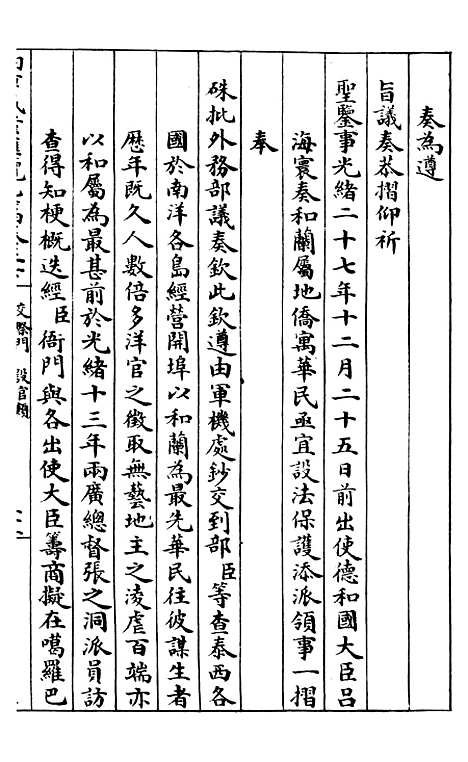 奏為遵
旨議奏恭摺仰祈
聖鑒事光緒二十七年十二月二十五日前出使德和國大臣呂
海寰奏和蘭屬地僑寓華民亟宜設法保護添派領事一摺
奉
硃批外務部議奏欽此欽遵由軍機處鈔交到部臣等查泰西各
國於南洋各島經營開埠以和蘭為最先華民往彼謀生者
歷年既久人數倍多洋官之徵取無藝地主之淩虐百端亦
以和屬為最甚前於光緒十三年兩廣總督張之洞派員訪
查得知梗概迭經臣衙門與各出使大臣籌商擬在噶羅巴
交際門 設官類